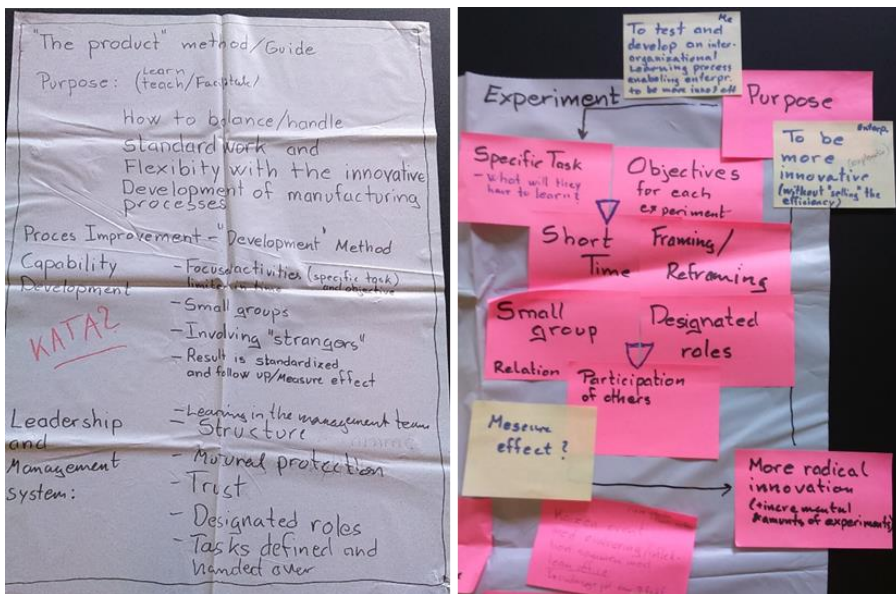 "The product" method/Guide
Purpose: (Learn
teach/Facilitate)
How to balance/handle
Standard work and
Flexibity with the innovative
Development of manufacturing
processes
Proces Improvement - "Development" Method
Capability
Development
- Focused activities (specific task)
limited in time and objective
- Small groups
- Involving "strangers"
- Result is standardized
and follow up/Measure effect
KATA?
Leadership
and
Management
system:
- Learning in the management team
- Structure
- protection
- Trust
- Designated roles
- Tasks defined and
handed over
Me
To test and
develop an inter-
organizational
Learning process
enabeling enterpr.
to be more
Experiment
Purpose
Enterp.
To be
more
innovative
(without "selling" the
efficiency)
Specific Task
- What will they
have to learn?
Objectives
for each
experiment
Short
Time
Framing/
Reframing
Small
group
Designated
roles
Relation
Participation
of others
Measure
effect?
More radical
innovation
(+incremental
amounts of experiments)